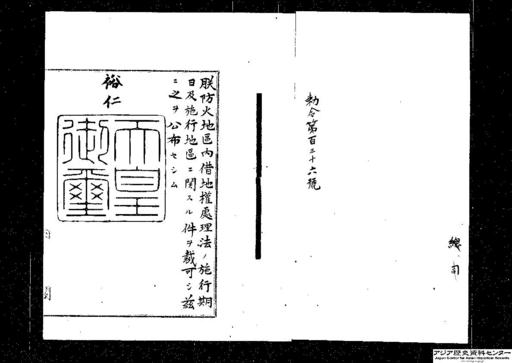 勅令第百二十六號
朕防火地區内借地權處理法ノ施行期
日及施行地區ニ関スル件ヲ裁可シ茲
ニ之ヲ公布セシム
裕仁
天皇
御璽
アジア歴史資料センター
Japan Center for Asian Historical Records